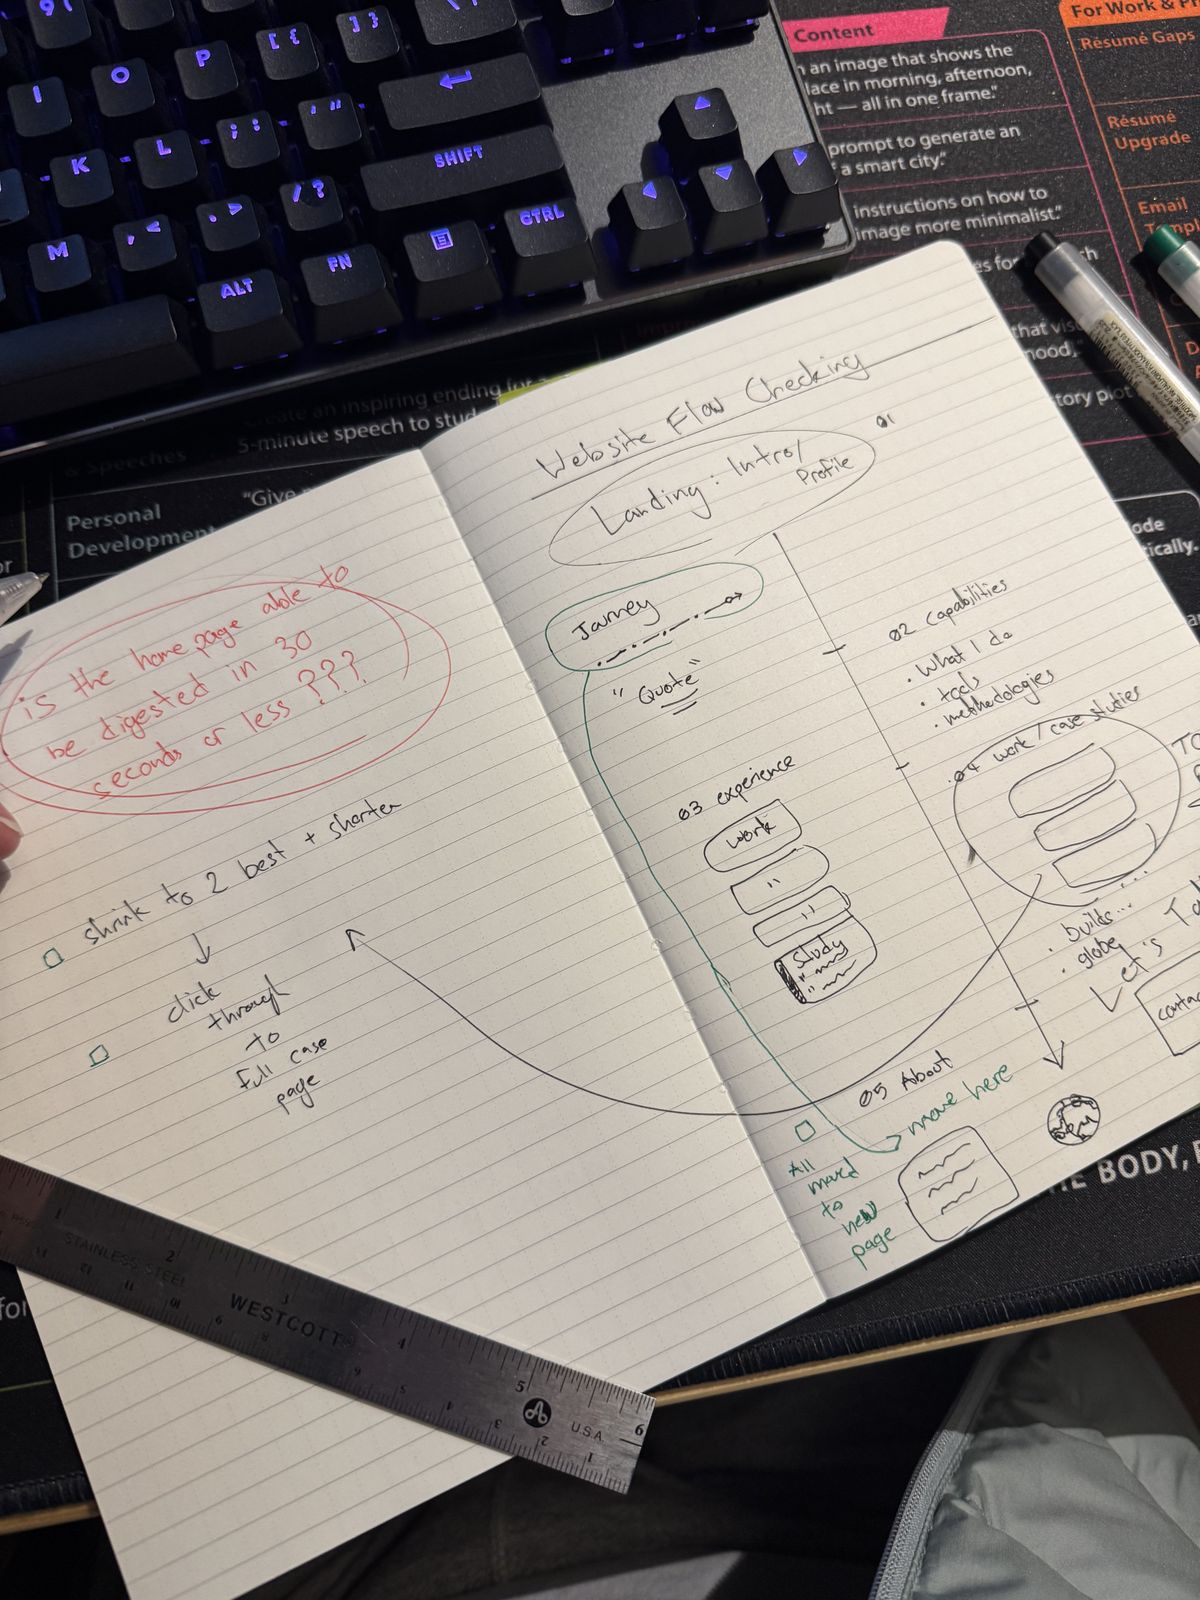 Content
an image that shows the
lace in morning, afternoon,
ht — all in one frame."
prompt to generate an
a smart city."
instructions on how to
image more minimalist."
For Work &
Résumé Gaps
Résumé
Upgrade
Email
O
P
[ {
] }
I
K
L
; :
' "
SHIFT
M
, <
. >
/ ?
ALT
FN
CTRL
create an inspiring ending for
5-minute speech to
& Speeches
"Give
Personal
Development
Website Flow Checking
01
Landing: Intro/
Profile
Journey
"Quote"
02 capabilities
• What I do
• tools
• methodologies
03 experience
work
"
"
Study
04 work/case studies
• builds...
• globe
Let's
05 About
move here
All
moved
to
new
page
is the home page able to
be digested in 30
seconds or less ???
shrink to 2 best + shorter
click
through
to
full case
page
STAINLESS STEEL
WESTCOTT
U.S.A.
1
2
3
4
5
6
BODY,